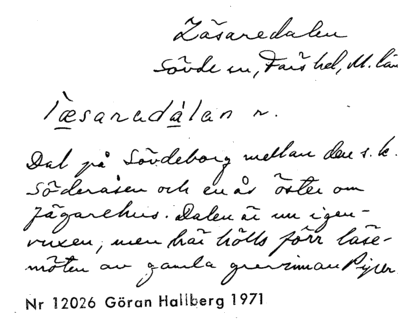 Läsaredalen
Sövde sn, Färs hd, M. län
læsaradálan n.
Dal på Sövdeborg mellan den s.k.
Söderåsen och en ås öster om
Jägarehus. Dalen är nu igen-
vuxen, men här hölls förr läse-
möten av gamla grevinnan Piper
Nr 12026 Göran Hallberg 1971